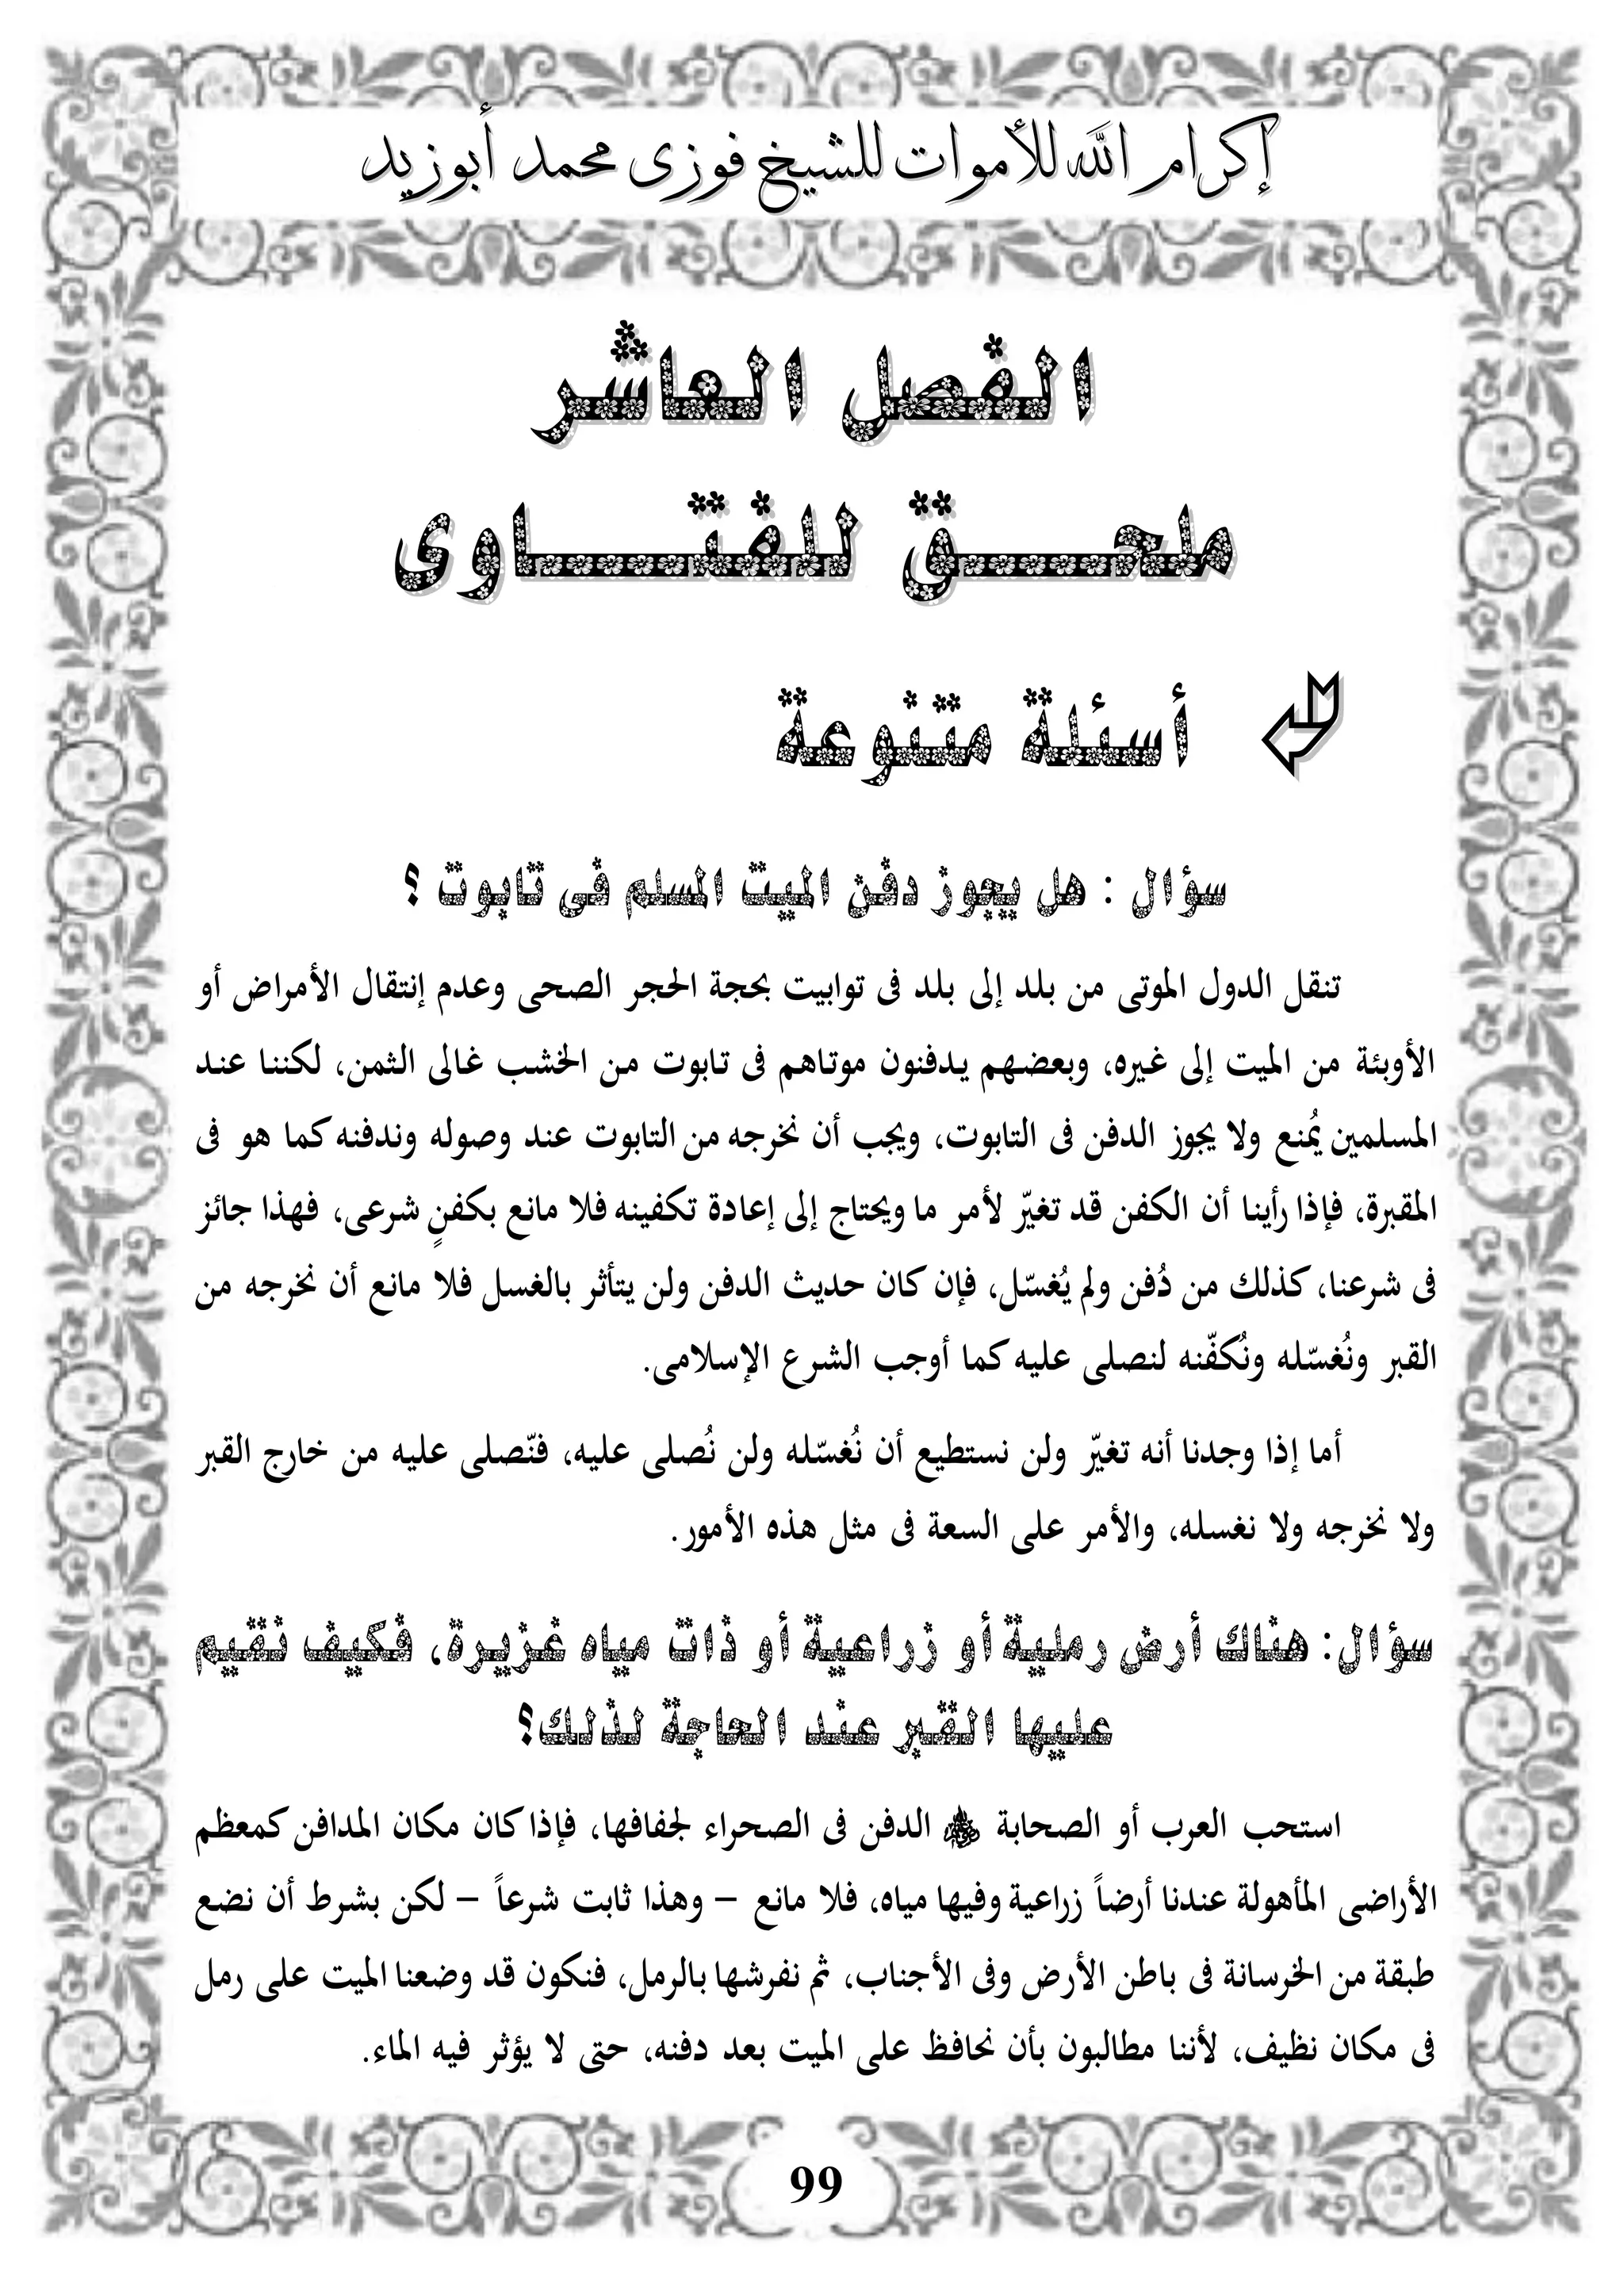 إكرام الله للأموات للشيخ فوزى محمد أبوزيد
الفصل العاشر
ملحق للفتاوى
أسئلة متنوعة
سؤال : هل يجوز دفن الميت المسلم فى تابوت ؟
تنقل الدول الموتى من بلد إلى بلد فى توابيت بحجة الحجر الصحى وعدم إنتقال الأمراض أو
الأوبئة من الميت إلى غيره، وبعضهم يدفنون موتاهم فى تابوت من الخشب غالى الثمن، لكننا عند
المسلمين يُمنع ولا يجوز الدفن فى التابوت، ويجب أن نخرجه من التابوت عند وصوله وندفنه كما هو فى
المقبرة، فإذا رأينا أن الكفن قد تغيّر لأمر ما ويحتاج إلى إعادة تكفينه فلا مانع بكفنٍ شرعى، فهذا جائز
فى شرعنا، كذلك من دُفن ولم يُغسّل، فإن كان حديث الدفن ولن يتأثر بالغسل فلا مانع أن نخرجه من
القبر ونُغسّله ونُكفّنه لنصلى عليه كما أوجب الشرع الإسلامى.
أما إذا وجدنا أنه تغيّر ولن نستطيع أن نُغسّله ولن نُصلى عليه، فنّصلى عليه من خارج القبر
ولا نخرجه ولا نغسله، والأمر على السعة فى مثل هذه الأمور.
سؤال: هناك أرض رملية أو زراعية أو ذات مياه غزيرة، فكيف نقيم
عليها القبر عند الحاجة لذلك؟
استحب العرب أو الصحابة الدفن فى الصحراء لجفافها، فإذا كان مكان المدافن كمعظم
الأراضى المأهولة عندنا أرضاً زراعية وفيها مياه، فلا مانع – وهذا ثابت شرعاً – لكن بشرط أن نضع
طبقة من الخرسانة فى باطن الأرض وفى الأجناب، ثم نفرشها بالرمل، فنكون قد وضعنا الميت على رمل
فى مكان نظيف، لأننا مطالبون بأن نحافظ على الميت بعد دفنه، حتى لا يؤثر فيه الماء.
99